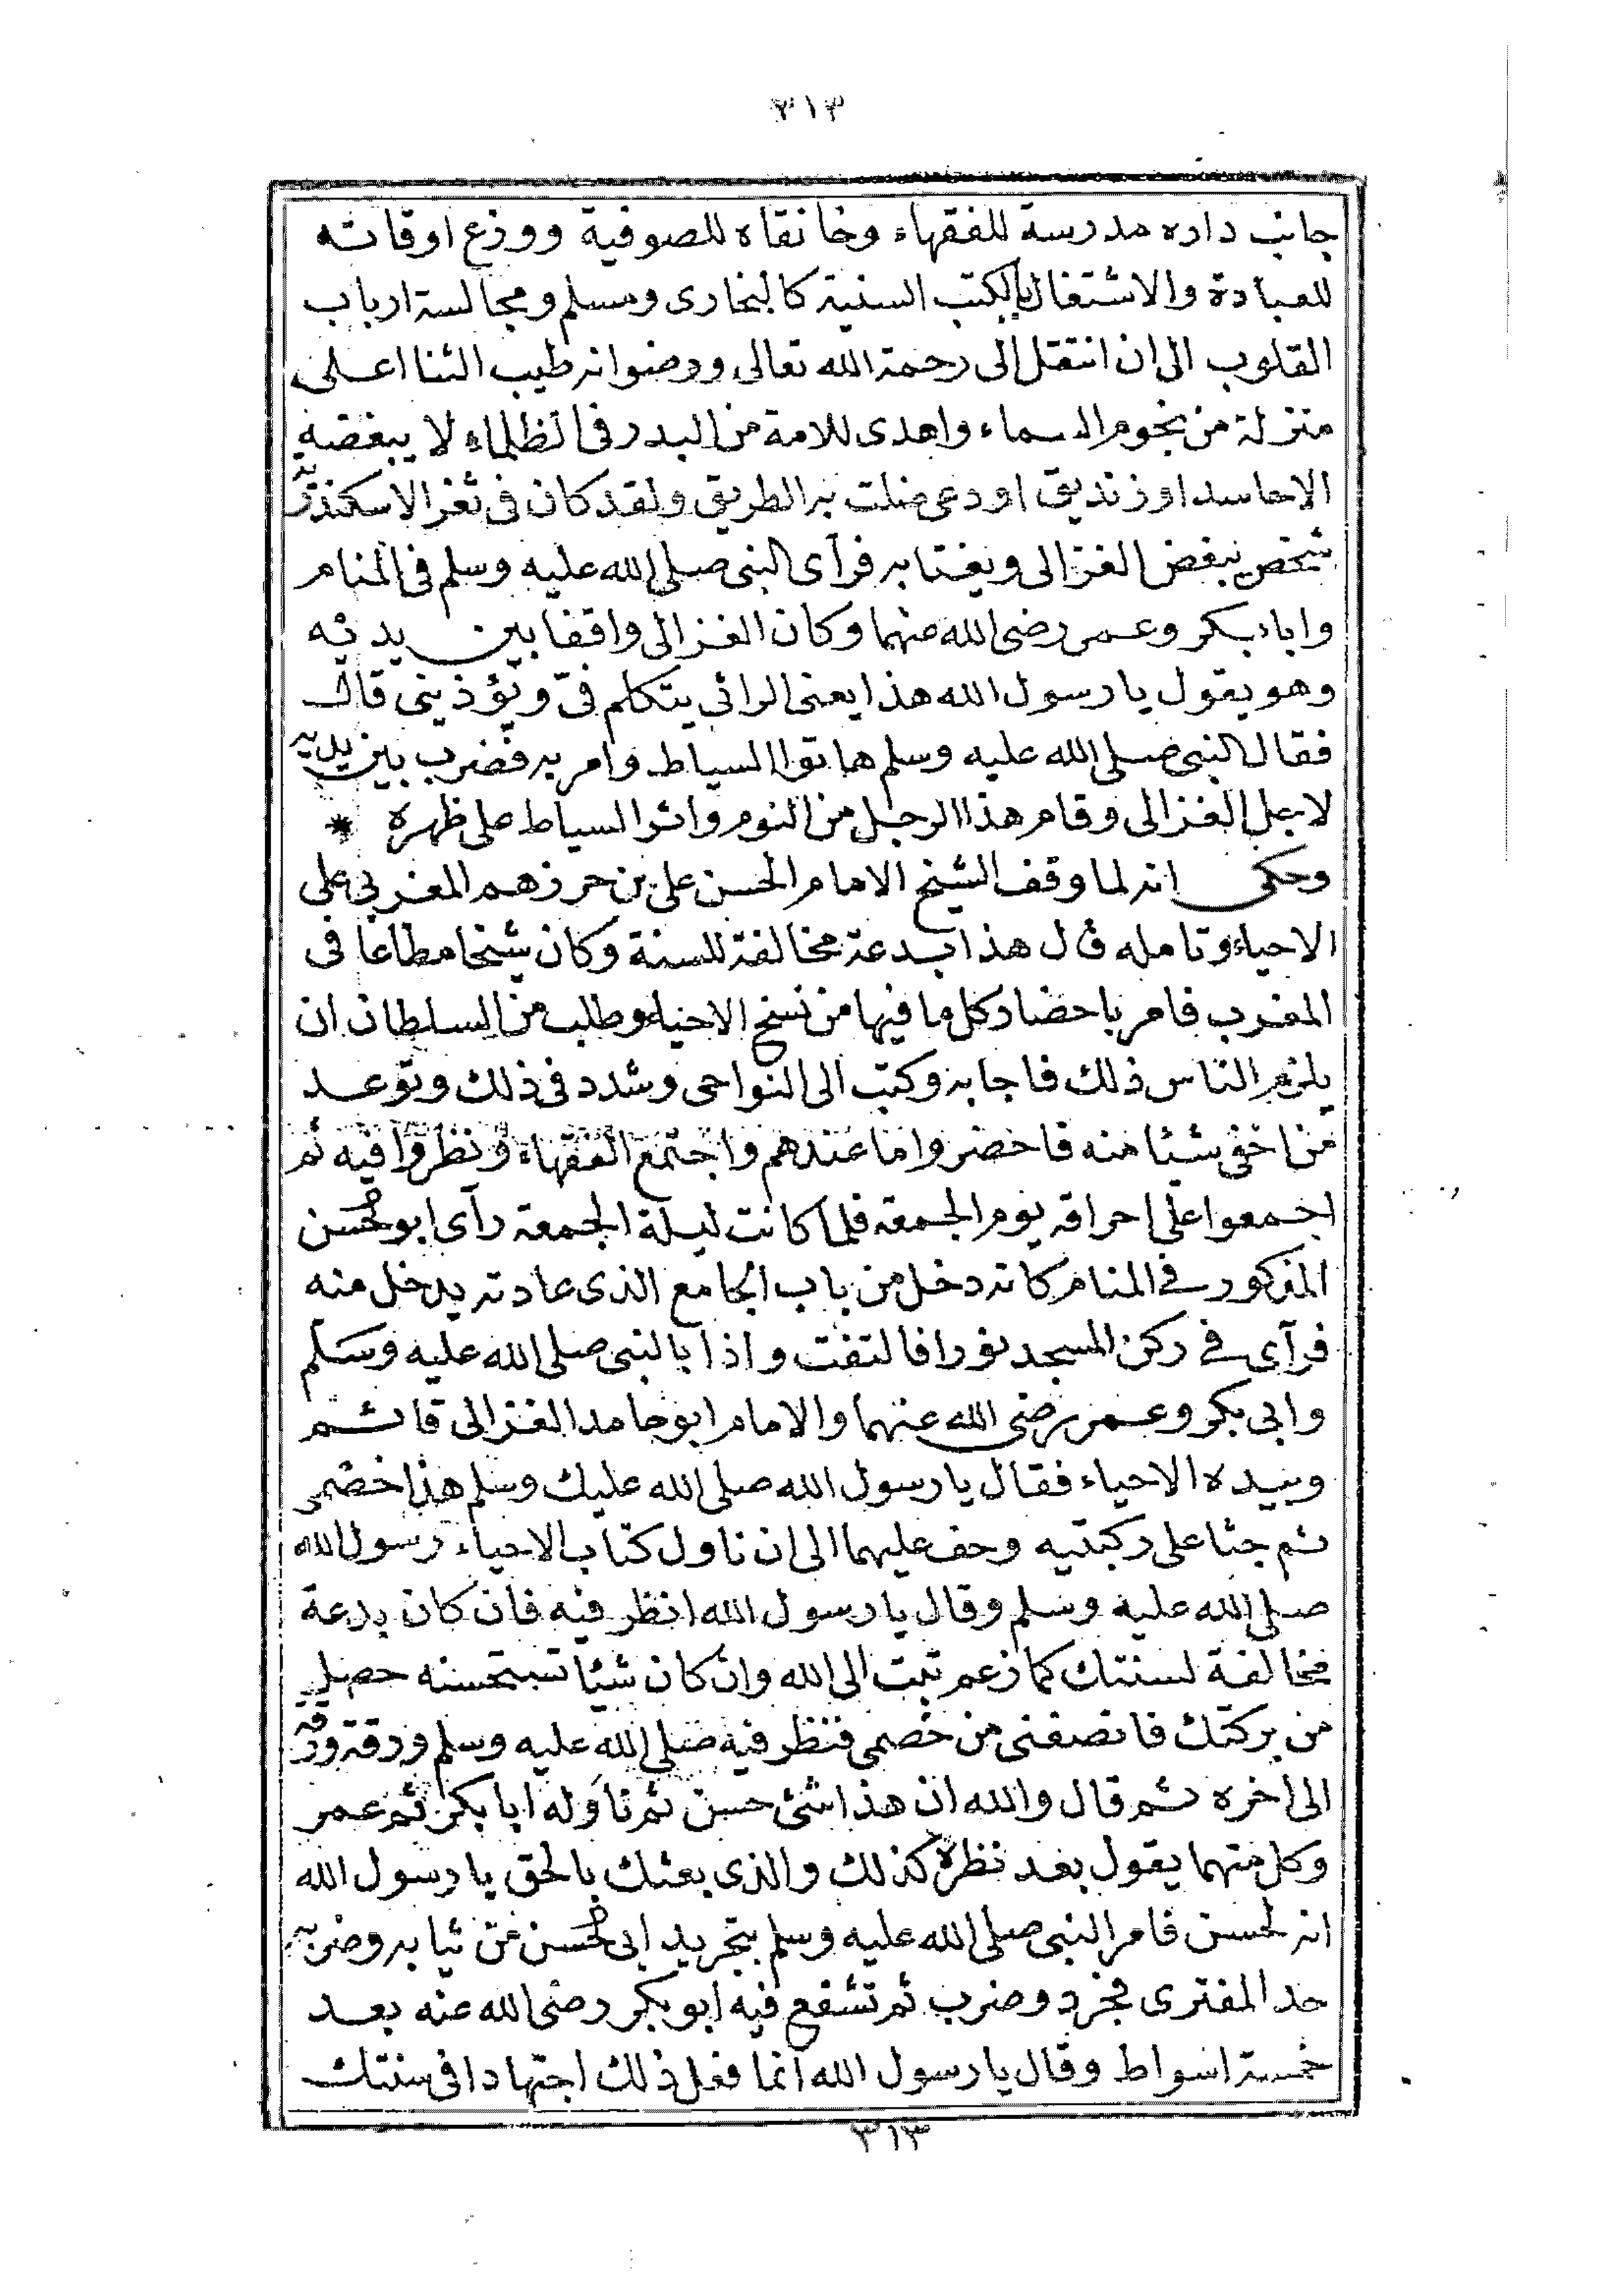 ٣١٣
جانب داره مدرسة للفقهاء وخانقاه للصوفية ووزع اوقاته
للعبادة والاشتغال بالكتب السنية كالبخارى ومسلم ومجالسة ارباب
القلوب الى ان انتقل الى رحمة الله تعالى ورضوانه طيب الثنا اعلى
منزلة من نجوم السماء واهدى للامة من البدر فى الظلماء لا يبغضه
الا حاسد او زنديق او دعى ضلت به الطريق ولقد كان فى ثغر الاسكندرية
شخص يبغض الغزالى ويغتابه فرآى النبى صلى الله عليه وسلم فى المنام
وابا بكر وعمر رضى الله عنهما وكان الغزالى واقفا بين يديه
وهو يقول يا رسول الله هذا يعنى الرائى يتكلم فىّ ويؤذينى قال
فقال النبى صلى الله عليه وسلم هاتوا السياط وامر به فضرب بين يديه
لاجل الغزالى وقام هذا الرجل من النوم واثر السياط على ظهره *
وحكى انه لما وقف الشيخ الامام الحسن على بن حرزهم المغربى على
الاحياء وتامله قال هذا بدعة مخالفة للسنة وكان شيخا مطاعا فى
المغرب فامر باحضار كل ما فيها من نسخ الاحياء وطلب من السلطان ان
يلزم الناس ذلك فاجابه وكتب الى النواحى وشدد فى ذلك وتوعد
من اخفى شيئا منه فاحضروا ما عندهم واجتمع الفقهاء ونظروا فيه ثم
اجمعوا على احراقه يوم الجمعة فلما كانت ليلة الجمعة رآى ابو الحسن
المذكور فى المنام كانه دخل من باب الجامع الذى عادته يدخل منه
فرآى فى ركن المسجد نورا فالتفت واذا بالنبى صلى الله عليه وسلم
وابى بكر وعمر رضى الله عنهما والامام ابو حامد الغزالى قائم
وبيده الاحياء فقال يا رسول الله صلى الله عليك وسلم هذا خصمى
ثم جثا على ركبتيه وحف عليهما الى ان ناول كتاب الاحياء رسول الله
صلى الله عليه وسلم وقال يا رسول الله انظر فيه فان كان بدعة
مخالفة لسنتك كما زعم تبت الى الله وان كان شيئا تستحسنه حصل
من بركتك فانصفنى من خصمى فنظر فيه صلى الله عليه وسلم ورقة ورقة
الى آخره ثم قال والله ان هذا شئ حسن ثم ناوله ابا بكر ثم عمر
وكل منهما يقول بعد نظره كذلك والذى بعثك بالحق يا رسول الله
انه لحسن فامر النبى صلى الله عليه وسلم بتجريد ابى الحسن من ثيابه وضربه
حد المفترى فجرد وضرب ثم تشفع فيه ابو بكر رضى الله عنه بعد
خمسة اسواط وقال يا رسول الله انما فعل ذلك اجتهادا فى سنتك
٣١٣